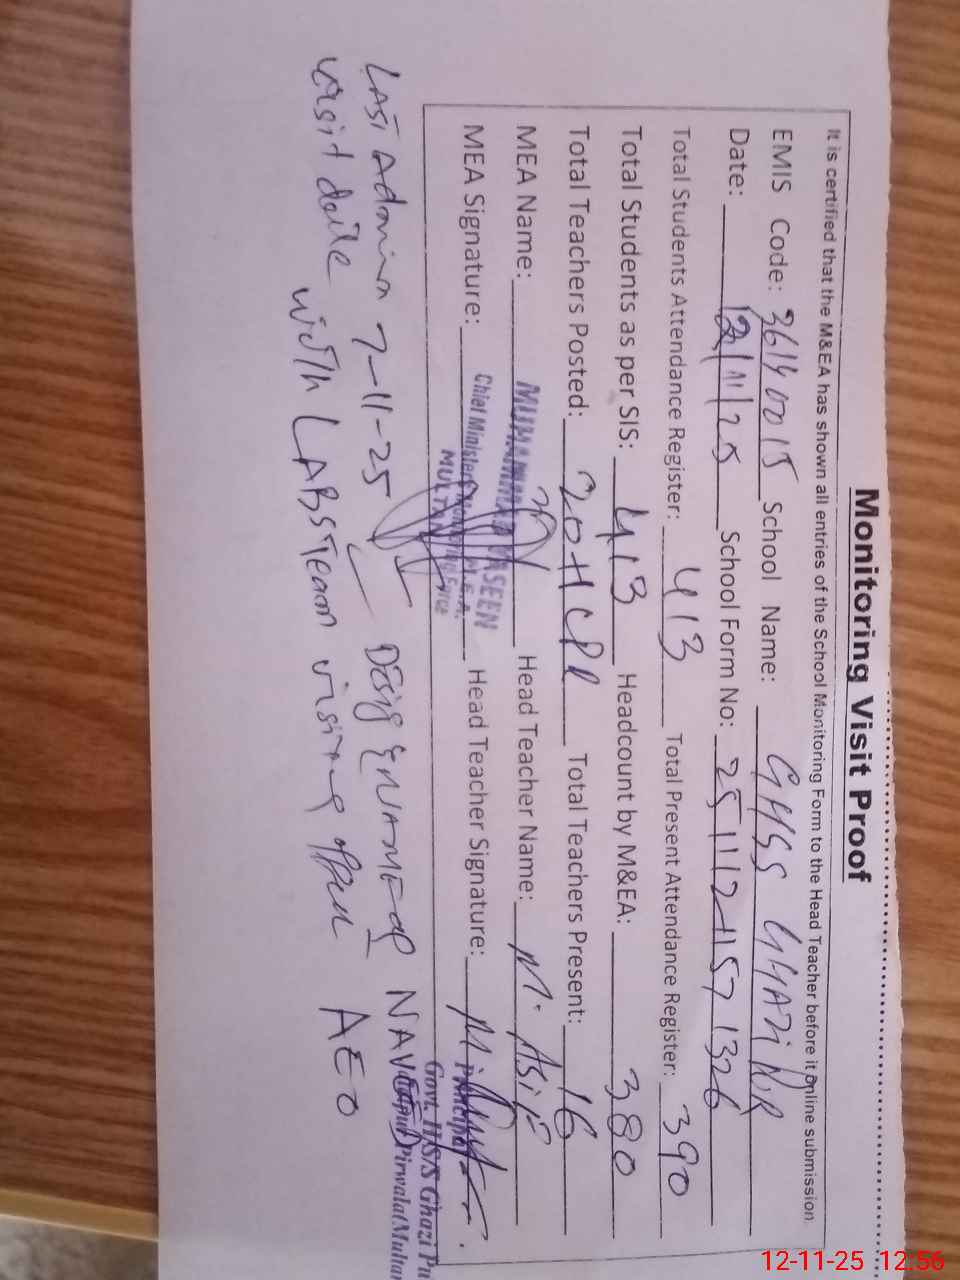 Monitoring Visit Proof
It is certified that the M&EA has shown all entries of the School Monitoring Form to the Head Teacher before it online submission.
EMIS Code: 36140015 School Name: GHSS GHAZI PUR
Date: 12/11/25 School Form No: 251112-1157 1326
Total Students Attendance Register: 413 Total Present Attendance Register: 390
Total Students as per SIS: 413 Headcount by M&EA: 380
Total Teachers Posted: 20+1 Total Teachers Present: 16
MEA Name: MUHAMMAD Head Teacher Name: M. Asif
MEA Signature: Head Teacher Signature:
Chief Minister's Monitoring Force
MULTAN
Principal
Govt. H/S/S Ghazi Pu
Pirwala(Multan
Last Admin 7-11-25 Desig & NAME of NAVEED
visit date with LABS Team visiting AEO
12-11-25 12:56